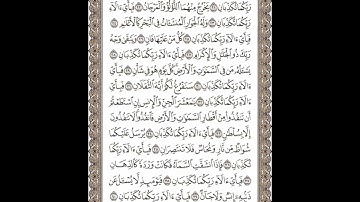 رَبِّكُمَا تُكَذِّبَانِ ۝ يَخْرُجُ مِنْهُمَا اللُّؤْلُؤُ وَالْمَرْجَانُ ۝ فَبِأَيِّ ءَالَآءِ
رَبِّكُمَا تُكَذِّبَانِ ۝ وَلَهُ الْجَوَارِ الْمُنشَـَٔاتُ فِي الْبَحْرِ كَالْأَعْلَٰمِ ۝
فَبِأَيِّ ءَالَآءِ رَبِّكُمَا تُكَذِّبَانِ ۝ كُلُّ مَنْ عَلَيْهَا فَانٍ ۝ وَيَبْقَىٰ وَجْهُ
رَبِّكَ ذُو الْجَلَٰلِ وَالْإِكْرَامِ ۝ فَبِأَيِّ ءَالَآءِ رَبِّكُمَا تُكَذِّبَانِ ۝
يَسْـَٔلُهُ مَن فِي السَّمَٰوَٰتِ وَالْأَرْضِ كُلَّ يَوْمٍ هُوَ فِي شَأْنٍ ۝ فَبِأَيِّ
ءَالَآءِ رَبِّكُمَا تُكَذِّبَانِ ۝ سَنَفْرُغُ لَكُمْ أَيُّهَ الثَّقَلَانِ ۝ فَبِأَيِّ
ءَالَآءِ رَبِّكُمَا تُكَذِّبَانِ ۝ يَٰمَعْشَرَ الْجِنِّ وَالْإِنسِ إِنِ اسْتَطَعْتُمْ
أَن تَنفُذُوا مِنْ أَقْطَارِ السَّمَٰوَٰتِ وَالْأَرْضِ فَانفُذُوا لَا تَنفُذُونَ
إِلَّا بِسُلْطَٰنٍ ۝ فَبِأَيِّ ءَالَآءِ رَبِّكُمَا تُكَذِّبَانِ ۝ يُرْسَلُ عَلَيْكُمَا
شُوَاظٌ مِّن نَّارٍ وَنُحَاسٌ فَلَا تَنتَصِرَانِ ۝ فَبِأَيِّ ءَالَآءِ رَبِّكُمَا
تُكَذِّبَانِ ۝ فَإِذَا انشَقَّتِ السَّمَآءُ فَكَانَتْ وَرْدَةً كَالدِّهَانِ
۝ فَبِأَيِّ ءَالَآءِ رَبِّكُمَا تُكَذِّبَانِ ۝ فَيَوْمَئِذٍ لَّا يُسْـَٔلُ عَن
ذَنۢبِهِ إِنسٌ وَلَا جَآنٌّ ۝ فَبِأَيِّ ءَالَآءِ رَبِّكُمَا تُكَذِّبَانِ ۝